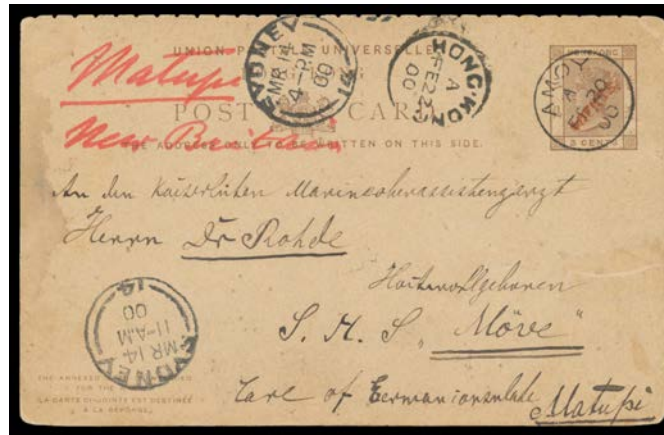 UNION POSTALE UNIVERSELLE
HONGKONG
POST CARD
THE ADDRESS ONLY TO BE WRITTEN ON THIS SIDE.
3 CENTS
Matupi
New Britain
SYDNEY
MR 14
4-PM
00
14
HONGKONG
A
FE 22
00
AMOY
A
00
An den Kaiserlichen Marineoberassistenzarzt
Herrn Dr Rohde
Hochwohlgeboren
S. M. S. "Möve"
Care of Germanconsulate
Matupi
SYDNEY
MR 14
11-AM
00
14
THE ANNEXED
FOR THE
LA CARTE CI-JOINTE EST DESTINÉE
À LA RÉPONSE.